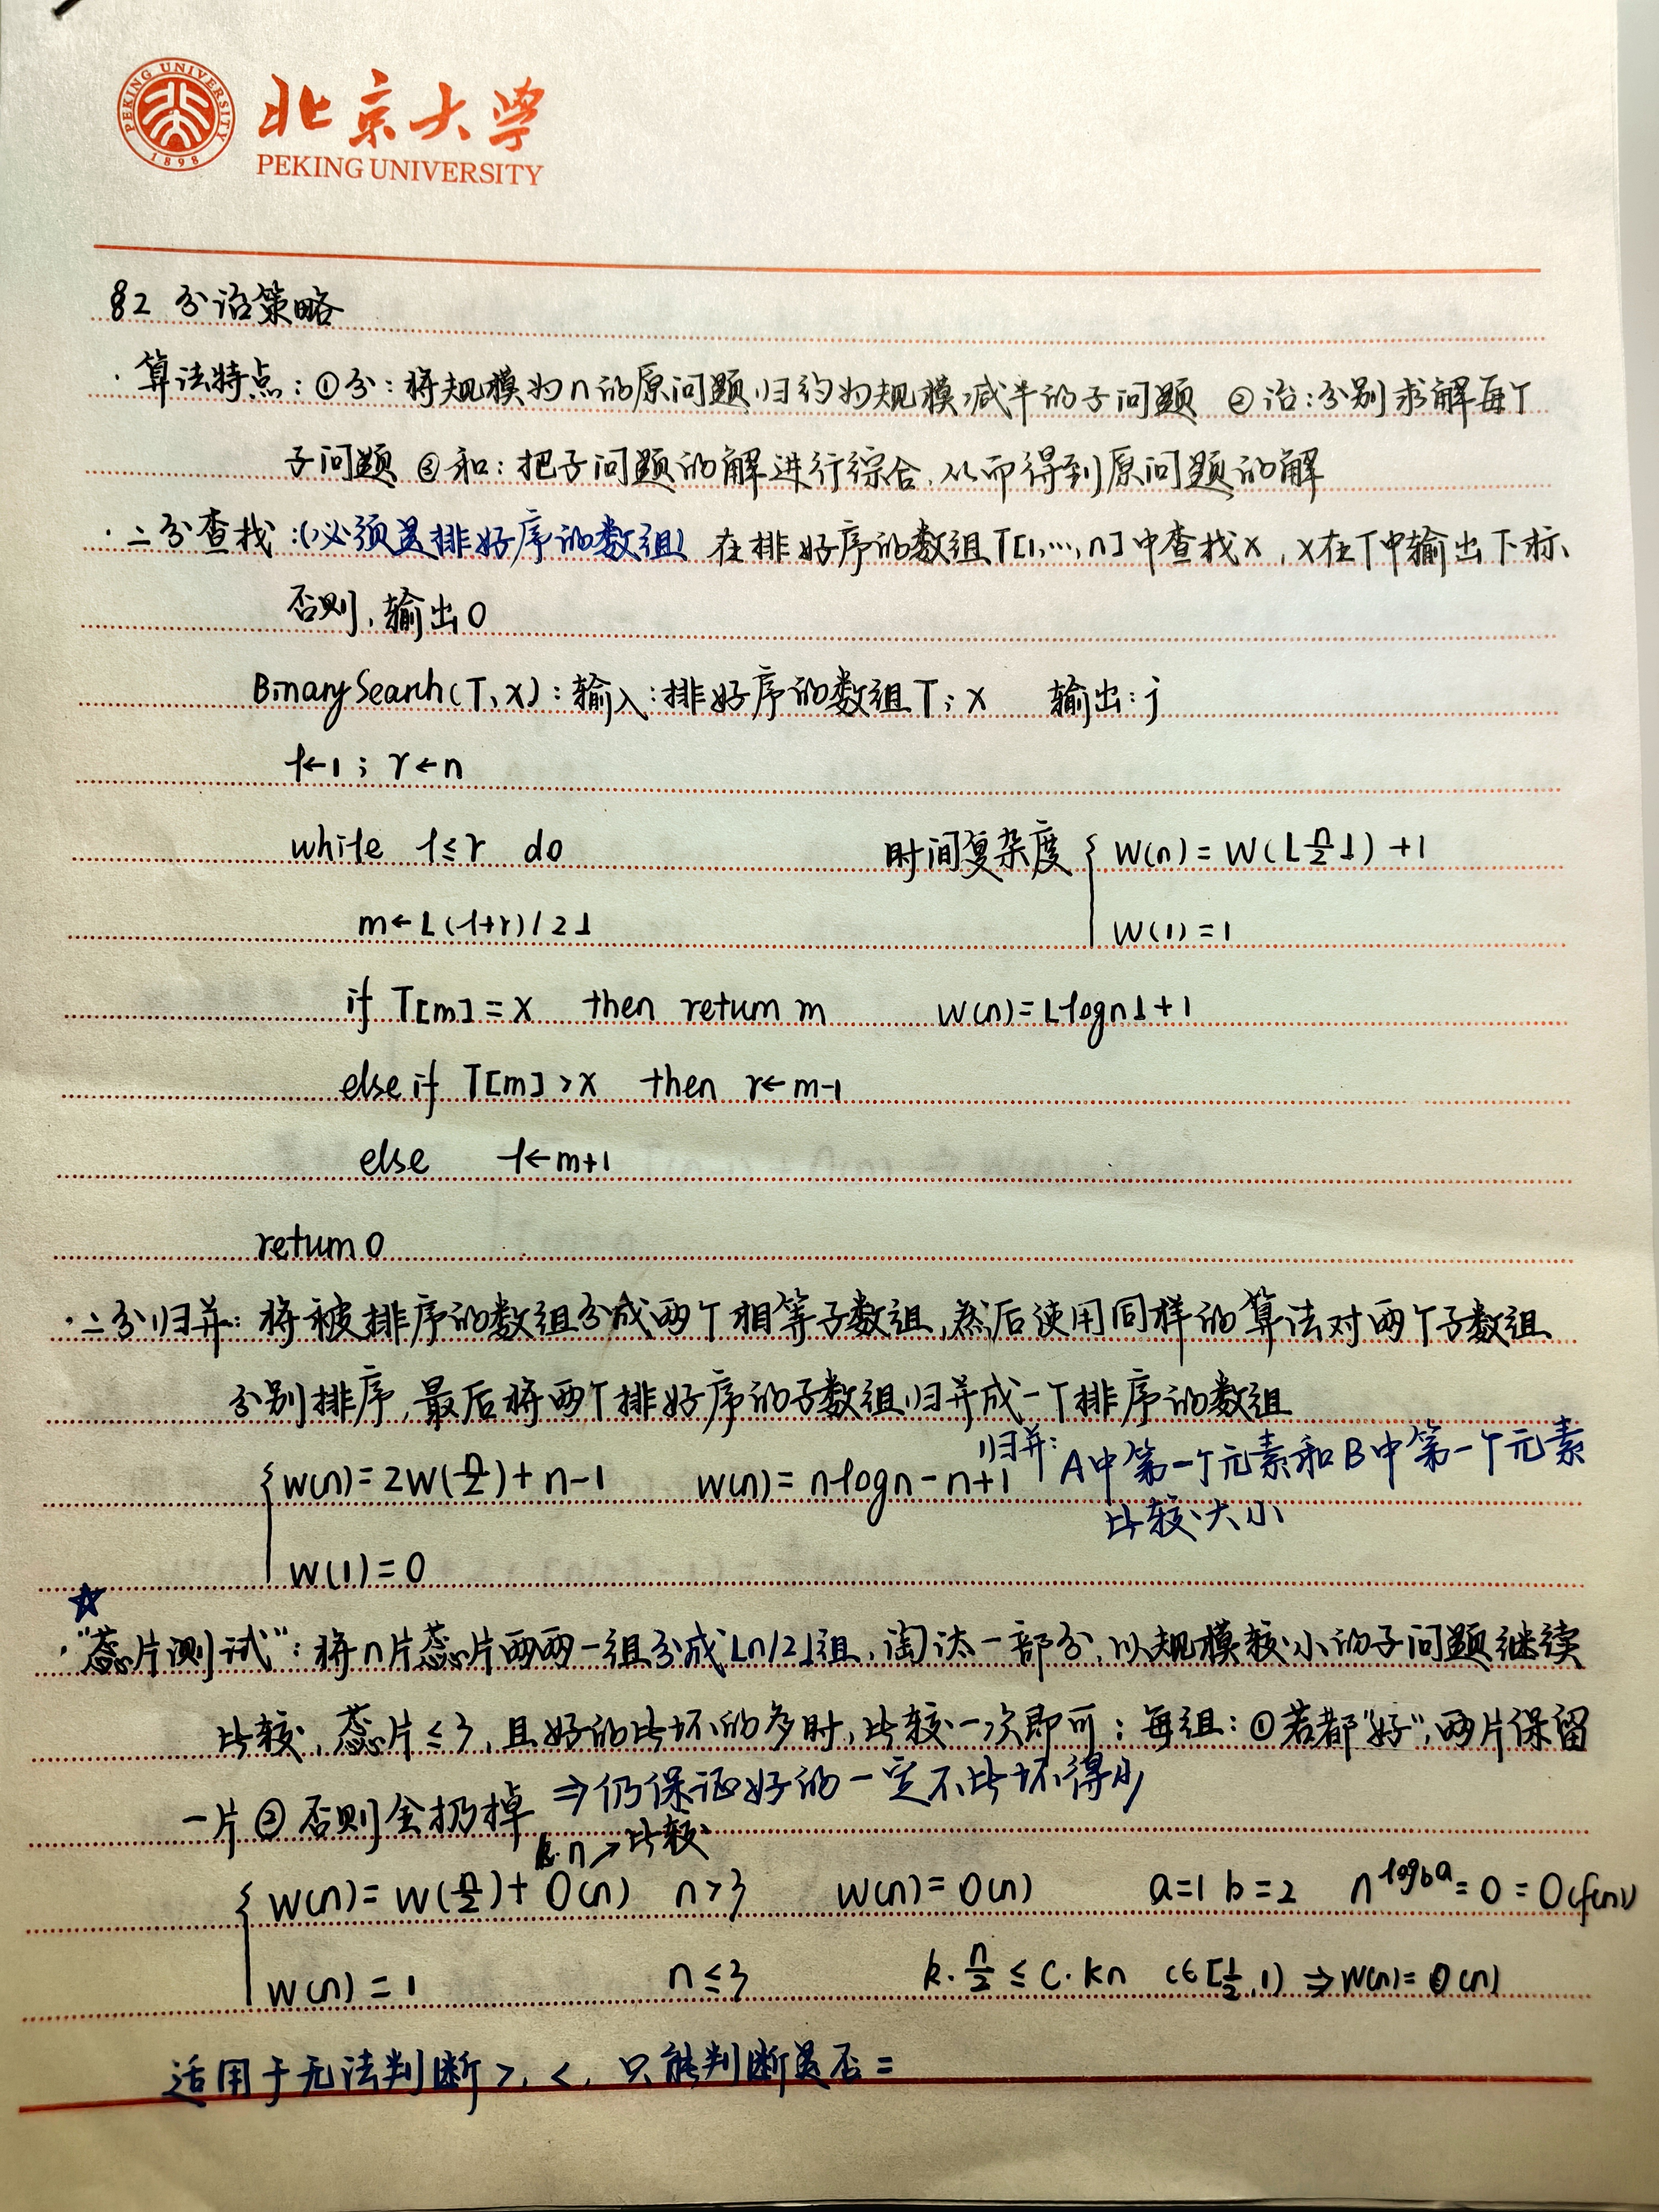 PEKING UNIVERSITY
1898
北京大学
PEKING UNIVERSITY
§2 分治策略
· 算法特点：①分：将规模为n的原问题归约为规模减半的子问题 ②治：分别求解每个
子问题 ③和：把子问题的解进行综合，从而得到原问题的解
· 二分查找：(必须是排好序的数组) 在排好序的数组T[1,…,n]中查找x，x在T中输出下标、
否则，输出0
BinarySearch(T、x)：输入：排好序的数组T；x 输出：j
l←1；r←n
while l≤r do
时间复杂度 { W(n)=W(⌊n/2⌋)+1
m←⌊(l+r)/2⌋
W(1)=1
if T[m]=x then return m W(n)=⌊logn⌋+1
else if T[m]>x then r←m-1
else l←m+1
return 0
· 二分归并：将被排序的数组分成两个相等子数组，然后使用同样的算法对两个子数组
分别排序，最后将两个排好序的子数组归并成一个排序的数组
{ W(n)=2W(n/2)+n-1 W(n)=nlogn-n+1 归并：A中第一个元素和B中第一个元素
比较大小
W(1)=0
☆
·“芯片测试”：将n片芯片两两一组分成⌊n/2⌋组，淘汰一部分，以规模较小的子问题继续
比较，芯片≤3，且好的比坏的多时，比较一次即可；每组：①若都“好”，两片保留
一片 ②否则全扔掉 ⇒仍保证好的一定不比坏得少
k·n↗比较
{ W(n)=W(n/2)+O(n) n>3 W(n)=O(n) a=1 b=2 n^logba=0=O(f(n))
W(n)=1 n≤3 k·n/2≤c·kn c∈[1/2,1) ⇒W(n)=O(n)
适用于无法判断>，<，只能判断是否=